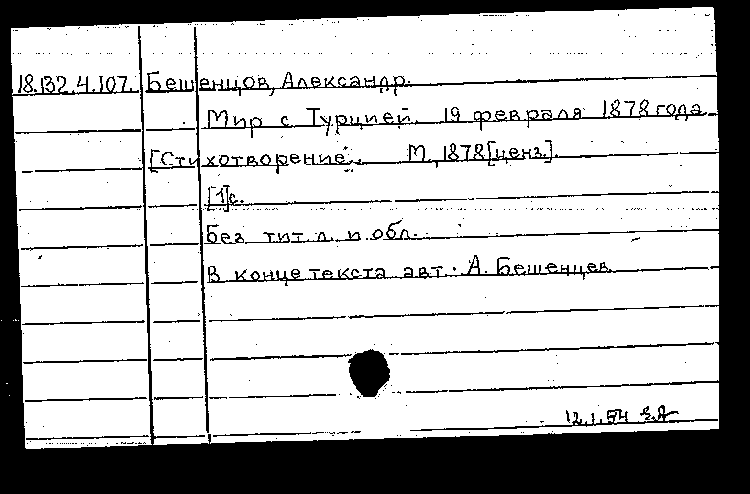 18.132.4.107. Бешенцов, Александр.
Мир с Турцией. 19 февраля 1878 года
[Стихотворение. М., 1878 [ценз.].
[1] с.
Без тит. л. и обл.
В конце текста авт.: А. Бешенцев
12.1.54